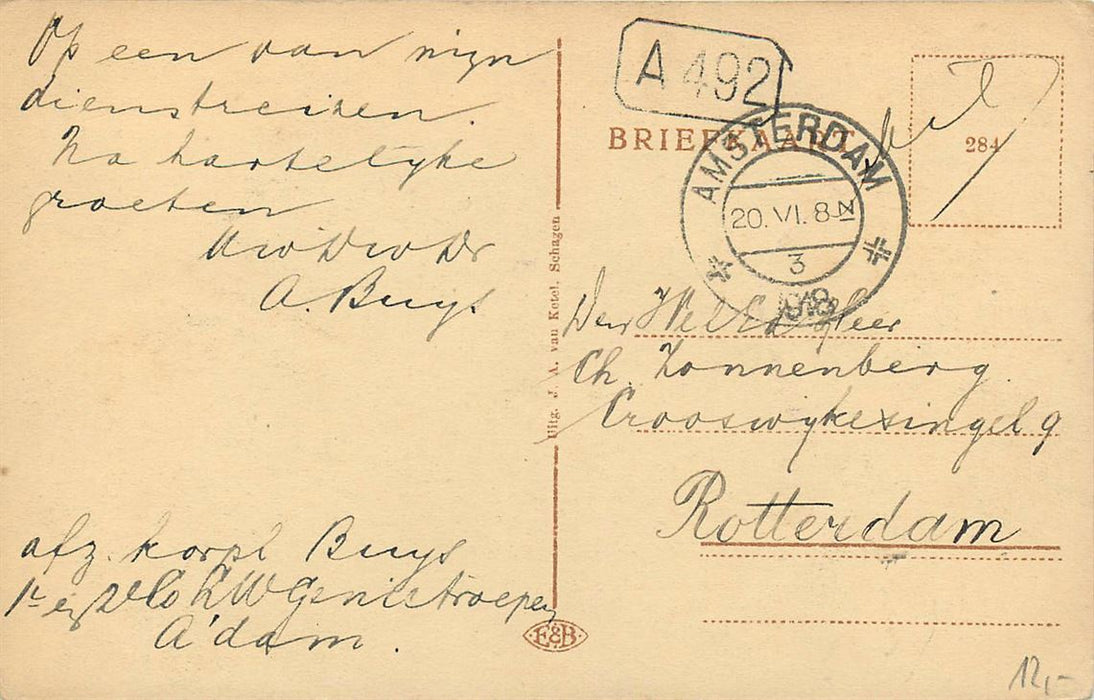 Op een van mijn
dienstreizen.
Na hartelijke
groeten
Uw Dw Dr
A. Buys
afz. korpl Buys
1e 2e Co LW Genietroepen
A'dam.
Uitg. J. A. van Ketel, Schagen
E&B
A 492
BRIEFKAART
284
AMSTERDAM
20. VI. 8-N
3
1918
Den WelEd Heer
Ch. Zonnenberg
Crooswykesingel 9
Rotterdam
12,-